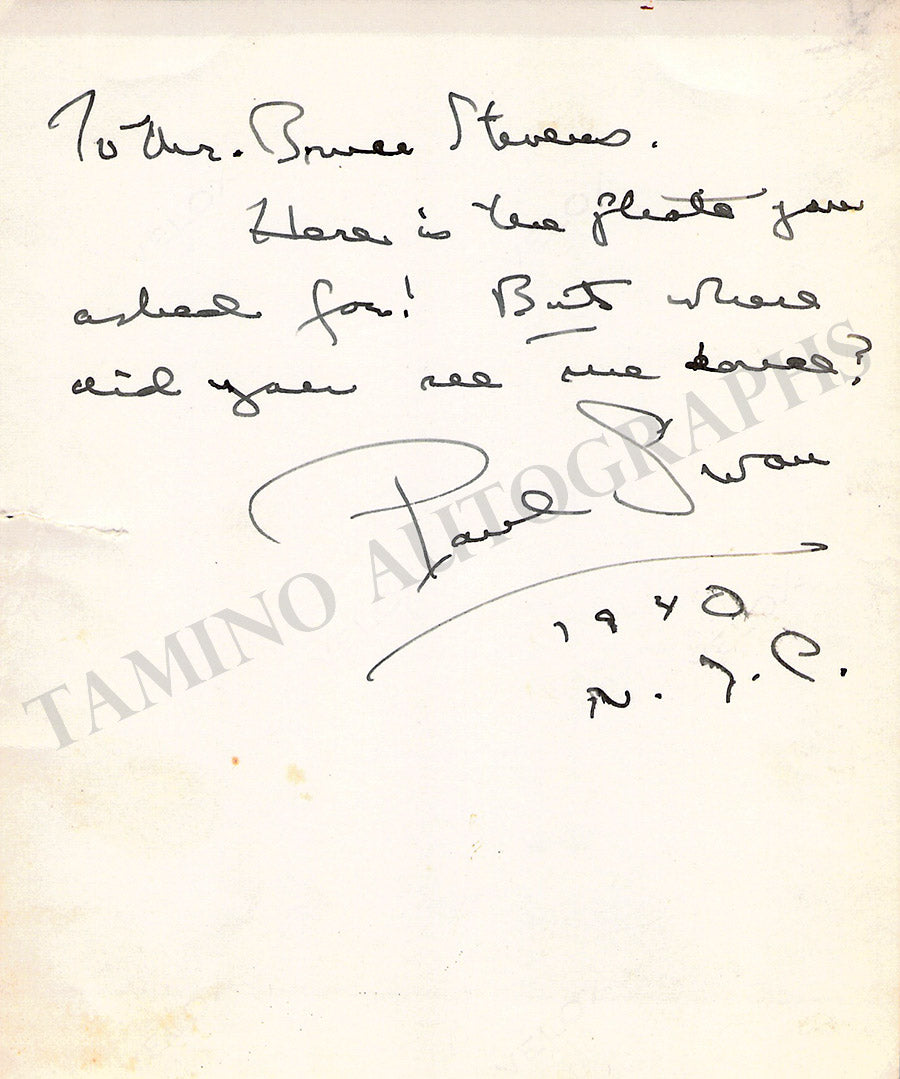 To Mr. Bruce Stevens.
Here is the photo you
asked for! But where
did you see me dance?
Paul Swan
1940
N.Y.C.
TAMINO AUTOGRAPHS